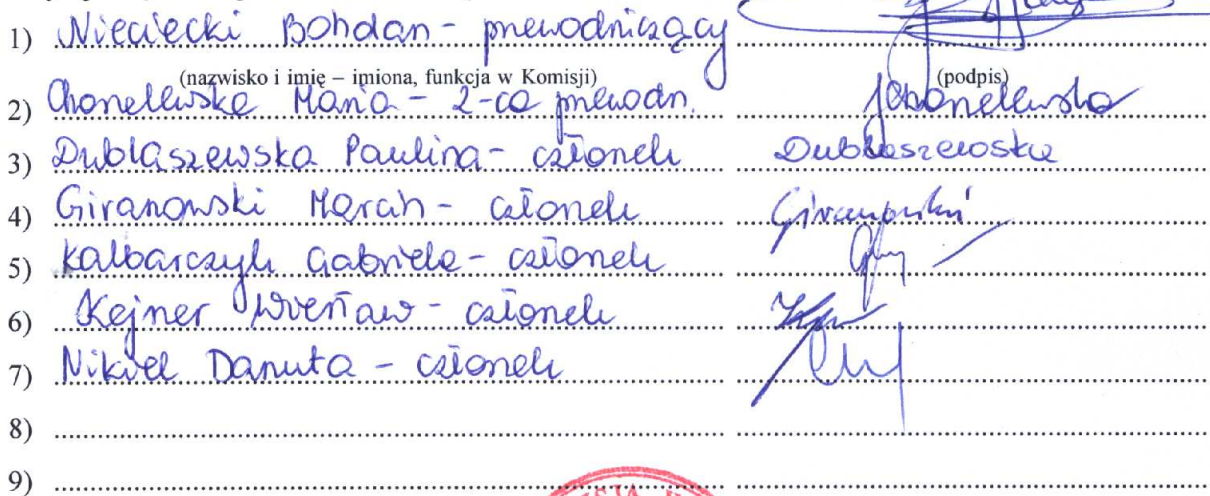 1) Nieciecki Bohdan - przewodniczący
(nazwisko i imię – imiona, funkcja w Komisji) (podpis)
2) Chonellewska Maria - z-ca przewodn.
3) Dublaszewska Paulina - członek Dublaszewska
4) Giranowski Marcin - członek Giranowski
5) Kalbarczyk Gabriela - członek
6) Kejner Wiesław - członek
7) Nikiel Danuta - członek
8)
9)